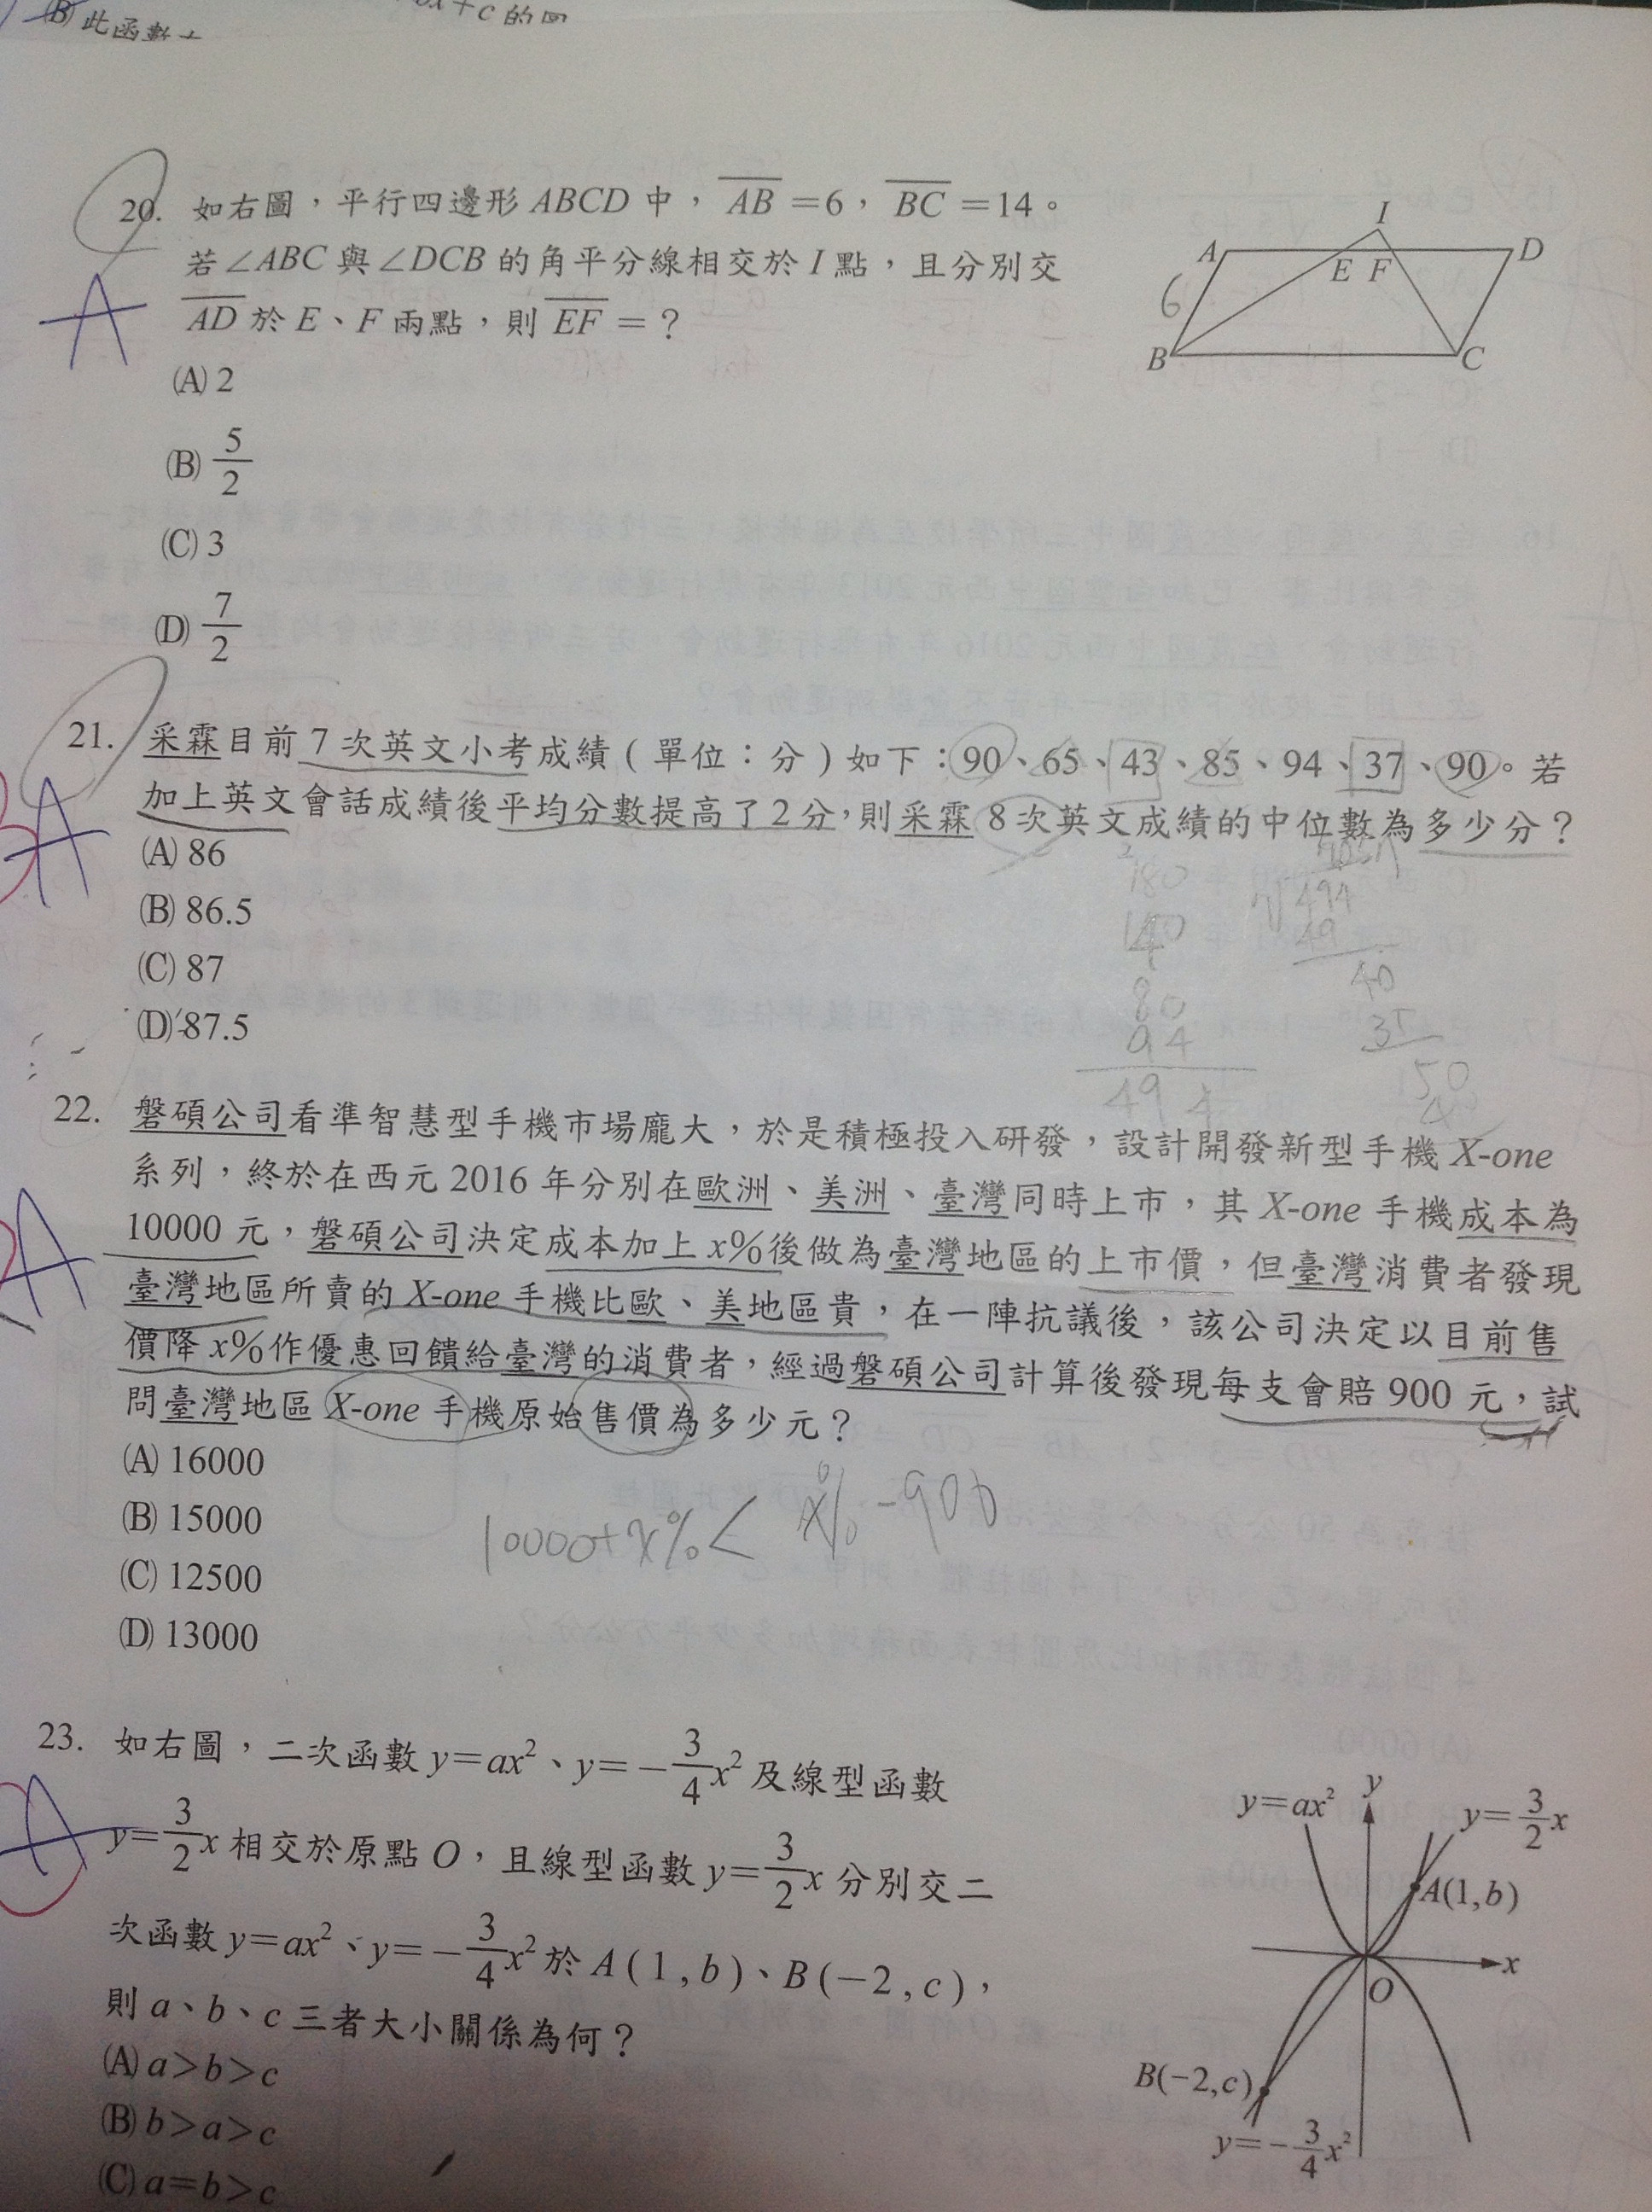 (B) 此函數
x+c 的
20. 如右圖，平行四邊形 ABCD 中，AB=6，BC=14。
若∠ABC 與∠DCB 的角平分線相交於 I 點，且分別交
AD 於 E、F 兩點，則 EF=？
(A) 2
(B) 5/2
(C) 3
(D) 7/2
I
A
E F
D
6
B
C
A
21. 采霖目前 7 次英文小考成績（單位：分）如下：90、65、43、85、94、37、90。若
加上英文會話成績後平均分數提高了 2 分，則采霖 8 次英文成績的中位數為多少分？
(A) 86
(B) 86.5
(C) 87
(D) 87.5
A
2
180
80
94
494
494
49
40
35
50
22. 磐碩公司看準智慧型手機市場龐大，於是積極投入研發，設計開發新型手機 X-one
系列，終於在西元 2016 年分別在歐洲、美洲、臺灣同時上市，其 X-one 手機成本為
10000 元，磐碩公司決定成本加上 x%後做為臺灣地區的上市價，但臺灣消費者發現
臺灣地區所賣的 X-one 手機比歐、美地區貴，在一陣抗議後，該公司決定以目前售
價降 x%作優惠回饋給臺灣的消費者，經過磐碩公司計算後發現每支會賠 900 元，試
問臺灣地區 X-one 手機原始售價為多少元？
(A) 16000
(B) 15000
(C) 12500
(D) 13000
A
10000+x%< x%-900
23. 如右圖，二次函數 y=ax²、y=-3/4x² 及線型函數
y=3/2x 相交於原點 O，且線型函數 y=3/2x 分別交二
次函數 y=ax²、y=-3/4x² 於 A(1,b)、B(-2,c)，
則 a、b、c 三者大小關係為何？
(A) a>b>c
(B) b>a>c
(C) a=b>c
A
y=ax²
y
y=3/2x
A(1,b)
x
O
B(-2,c)
y=-3/4x²